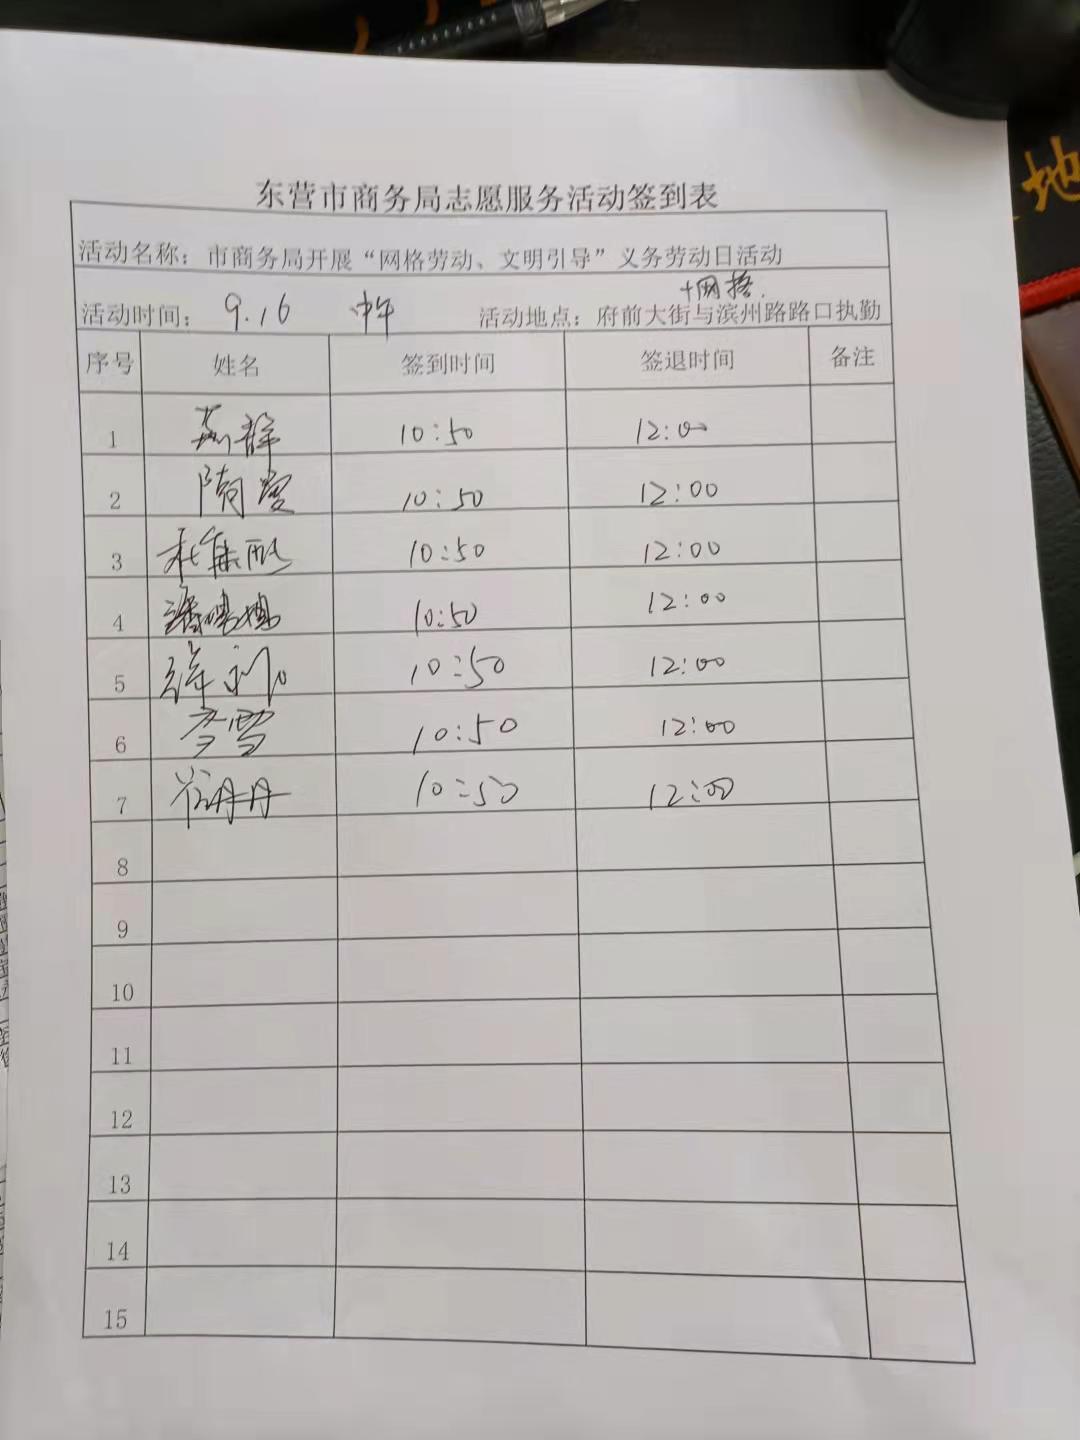 东营市商务局志愿服务活动签到表
活动名称：市商务局开展“网格劳动、文明引导”义务劳动日活动
+网格.
活动时间：9.16 中午 活动地点：府前大街与滨州路路口执勤
序号 姓名 签到时间 签退时间 备注
1 10:50 12:00
2 隋 10:50 12:00
3 杜 10:50 12:00
4 潘 10:50 12:00
5 10:50 12:00
6 李雪 10:50 12:00
7 崔丹丹 10:50 12:00
8
9
10
11
12
13
14
15
地